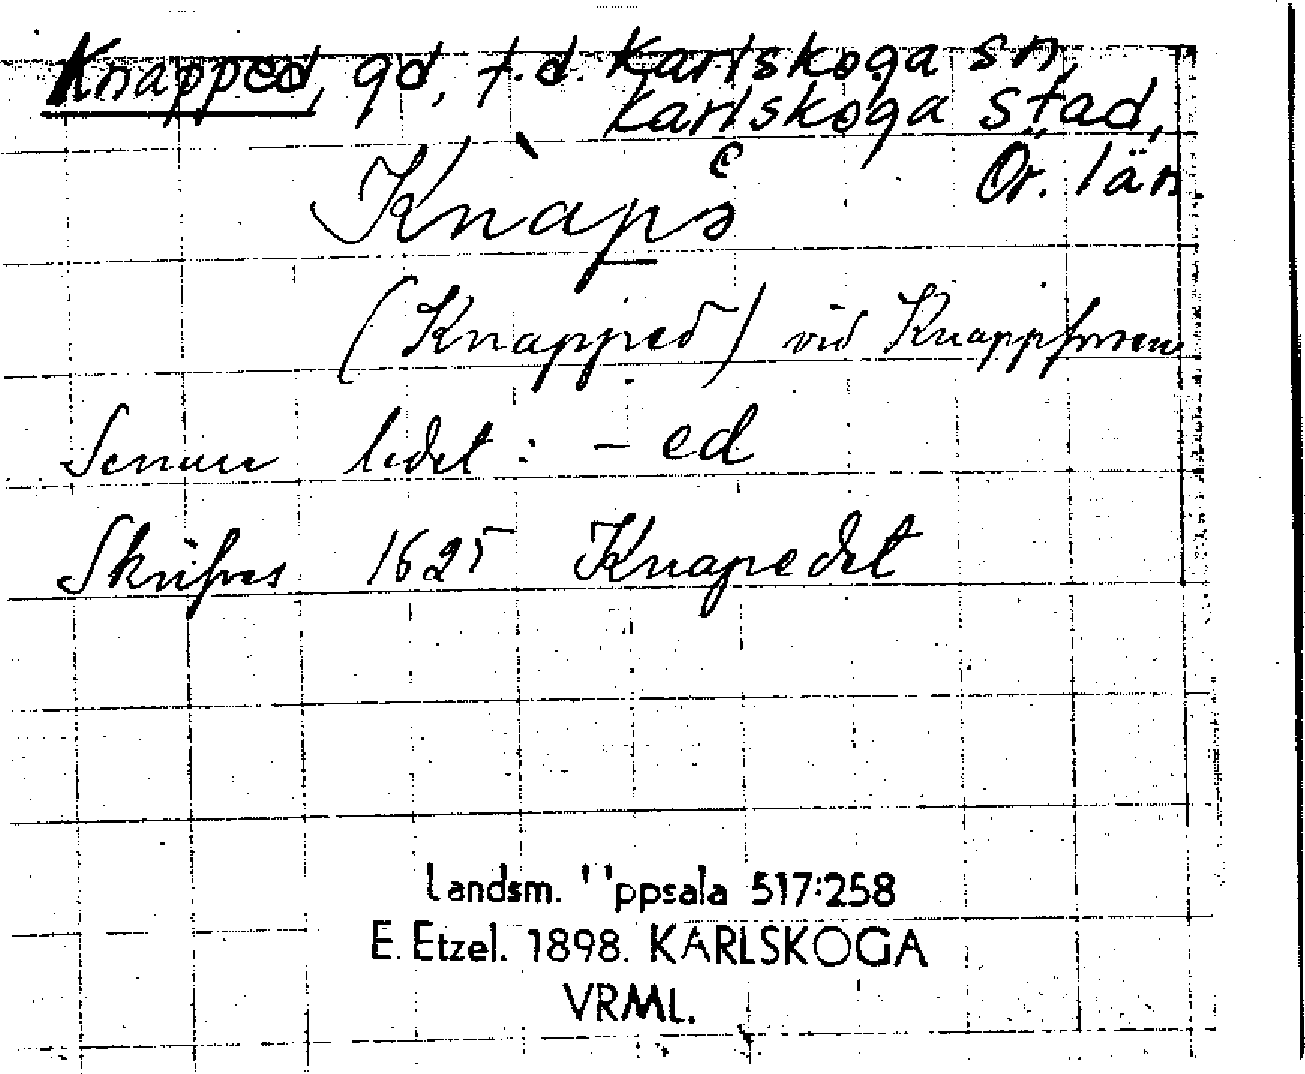 Knapped, gd, f.d. Karlskoga sn,
Karlskoga stad,
Ör. län
Knàps
(Knapped) vid Knappforsen
Senare ledet: - ed
Skrifves 1625 Knapedet
Landsm. Uppsala 517:258
E. Etzel. 1898. KARLSKOGA
VRML.